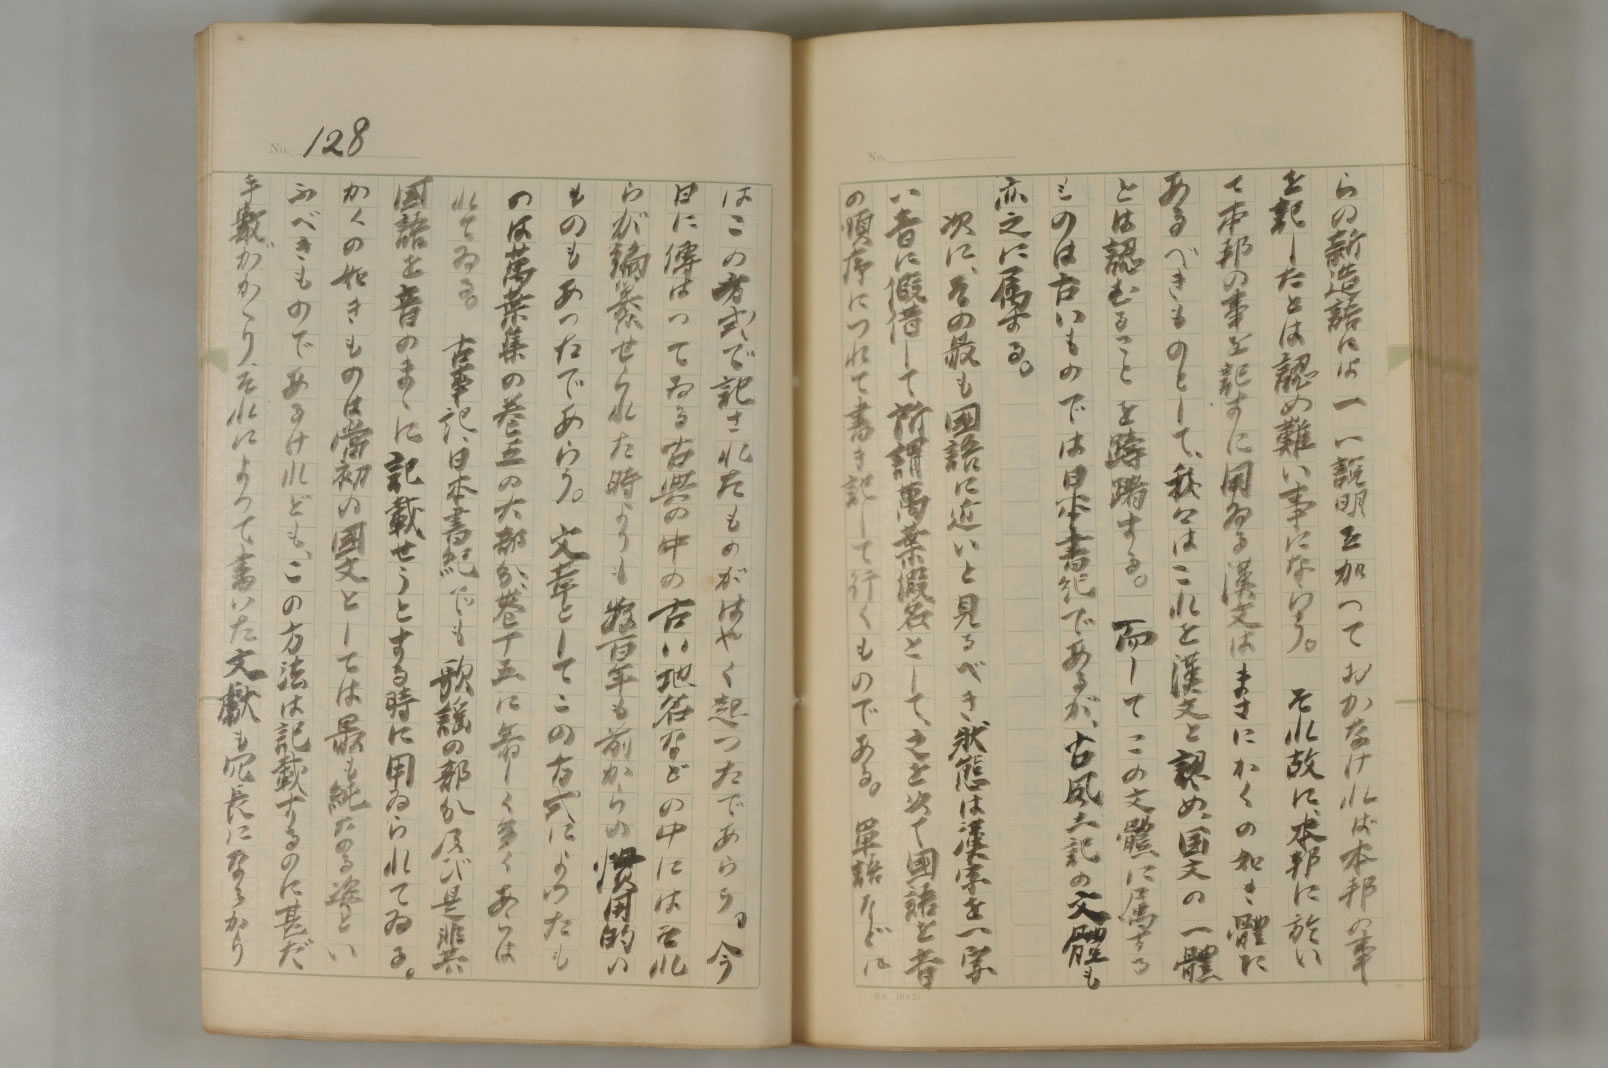 らの新造語には一い説明を加つておかなければ本邦の事
を記したとは認め難い事にならう。それ故に、本邦に於い
て本邦の事を記すに用ゐる漢文はまさにかくの如き體に
あるべきものとして、我々はこれを漢文と認め、国文の一體
とは認むることを躊躇する。而してこの文體に属する
ものは古いものでは日本書紀であるが、古風土記の文體も
亦之に属する。
次に、その最も國語に近いと見るべき状態は漢字を一字
い音に假借して所謂萬葉假名として、之を以て國語を音
の順序につれて書き記して行くものである。單語などに
No.
No. 128
はこの方式で記されたものがはやく起つたであらう。今
日に傳はつてゐる古典の中の古い地名などの中にはそれ
らが編纂せられた時よりも數百年も前からの慣用的い
ものもあつたであらう。文章としてこの方式によつたも
のは萬葉集の巻五の大部分、巻十五に等しく多くあらは
れてゐる。古事記、日本書紀でも歌謡の部分及び是非共
国語を音のまゝに記載せうとする時に用ゐられてゐる。
かくの如きものは當初の國文としては最も純なる姿とい
ふべきものであるけれども、この方法は記載するのに甚だ
手數がかゝり、それによつて書いた文獻も冗長になるかり